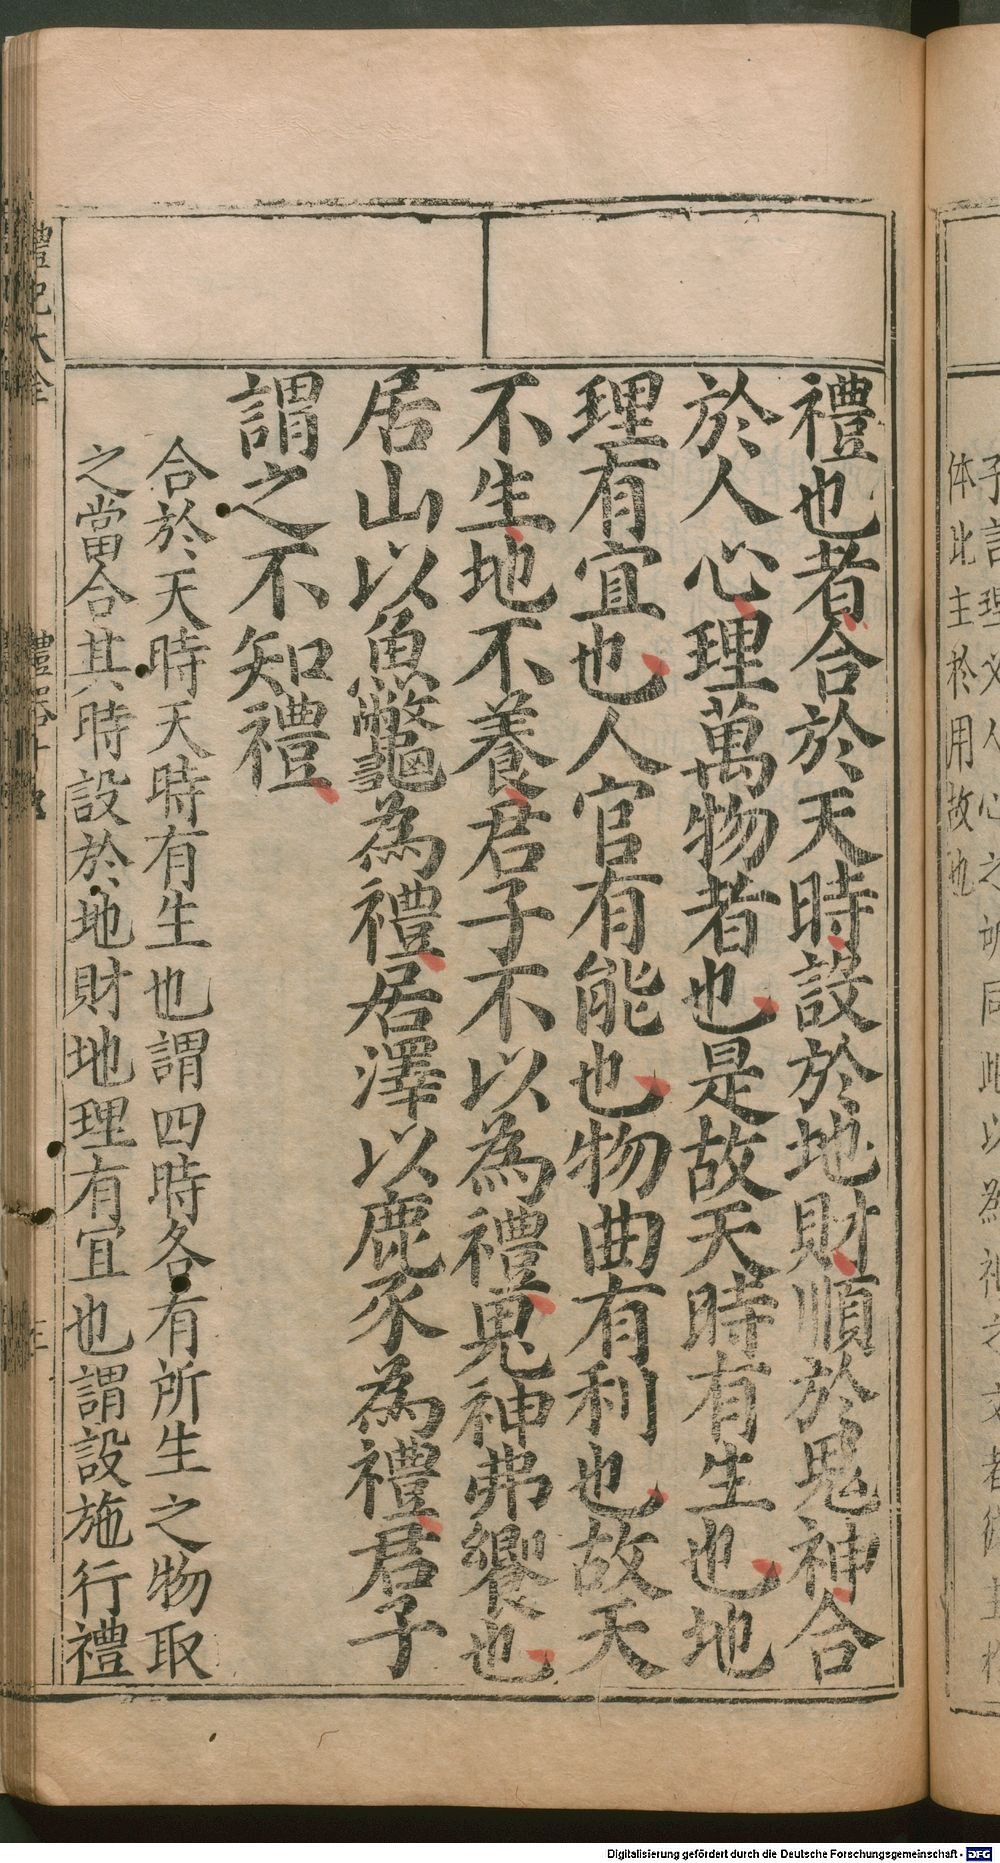 禮也者合於天時設於地財順於鬼神合
於人心理萬物者也是故天時有生也地
理有宜也人官有能也物曲有利也故天
不生地不養君子不以為禮鬼神弗饗也
居山以魚鼈為禮居澤以鹿豕為禮君子
謂之不知禮
合於天時天時有生也謂四時各有所生之物取
之當合其時設於地財地理有宜也謂設施行禮
禮記大全
禮器十
体此主於用故也
Digitalisierung gefördert durch die Deutsche Forschungsgemeinschaft - DFG